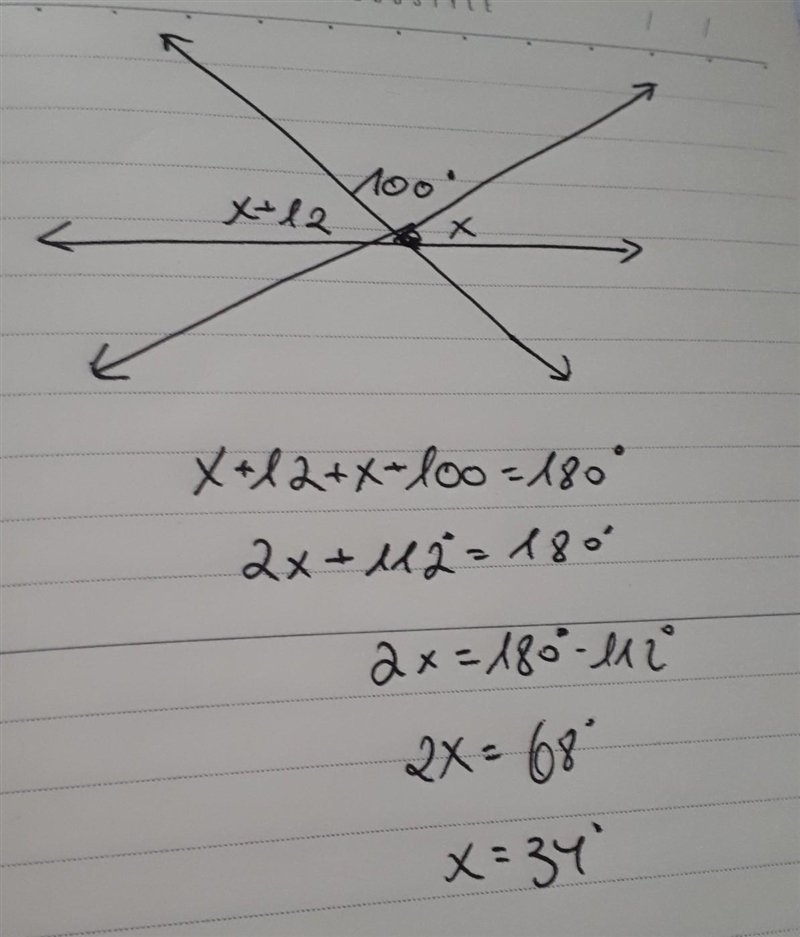 100°
x+12
x
x+12+x+100=180°
2x+112°=180°
2x=180°-112°
2x=68°
x=34°